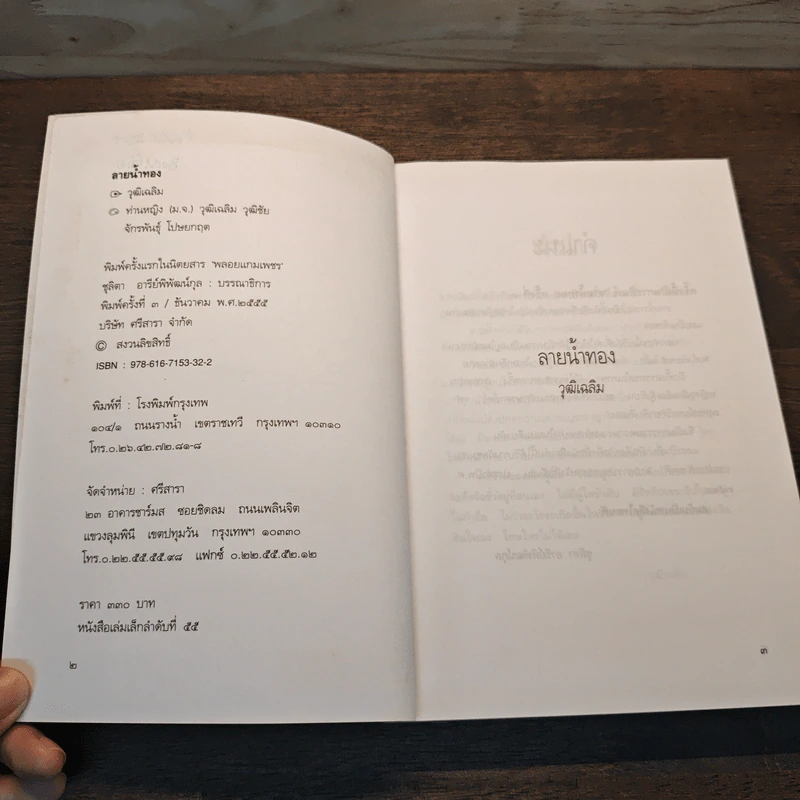 ลายน้ำทอง
วุฒิเฉลิม
ท่านหญิง (ม.จ.) วุฒิเฉลิม วุฒิชัย
จักรพันธุ์ โปษยกฤต
พิมพ์ครั้งแรกในนิตยสาร 'พลอยแกมเพชร'
ชุลิตา อารีย์พิพัฒน์กุล : บรรณาธิการ
พิมพ์ครั้งที่ ๓ / ธันวาคม พ.ศ.๒๕๕๕
บริษัท ศรีสารา จำกัด
© สงวนลิขสิทธิ์
ISBN : 978-616-7153-32-2
พิมพ์ที่ : โรงพิมพ์กรุงเทพ
๑๐๔/๑ ถนนรางน้ำ เขตราชเทวี กรุงเทพฯ ๑๐๓๑๐
โทร.๐.๒๖.๔๒.๗๒.๘๑-๘
จัดจำหน่าย : ศรีสารา
๒๓ อาคารชาร์มส ซอยชิดลม ถนนเพลินจิต
แขวงลุมพินี เขตปทุมวัน กรุงเทพฯ ๑๐๓๓๐
โทร.๐.๒๒.๕๕.๕๕.๙๘ แฟกซ์ ๐.๒๒.๕๕.๕๒.๑๒
ราคา ๓๓๐ บาท
หนังสือเล่มเล็กลำดับที่ ๕๕
๒
ลายน้ำทอง
วุฒิเฉลิม
๓